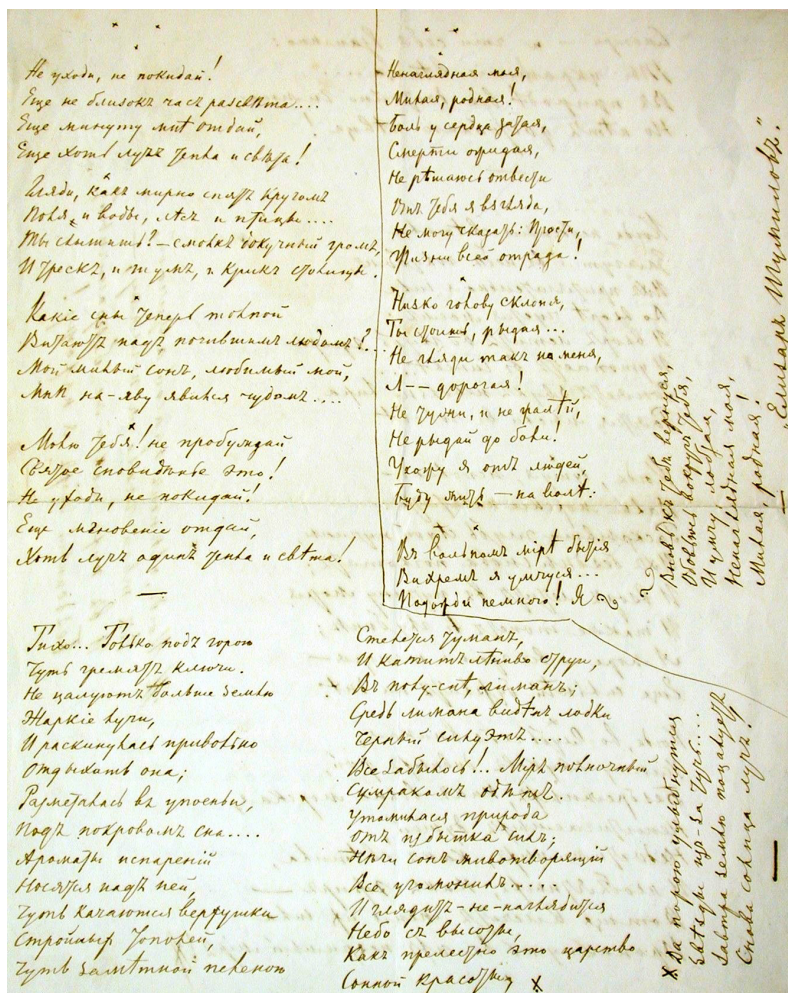 Не уходи, не покидай!
Еще не близокъ часъ разсвѣта....
Еще минуту мнѣ отдай,
Еще хоть лучъ тепла и свѣта!
Гляди, какъ мирно спятъ кругомъ
Поля, и воды, лѣсъ и птицы....
Ты слышишь? — смолкъ докучный громъ,
И трескъ, и шумъ, и крикъ столицы.
Какіе сны теперь толпой
Витаютъ надъ погибшимъ людомъ?..
Мой милый сонъ, любимый мой,
Мнѣ на-яву явился чудомъ....
Молю тебя! не пробуждай
Святое сновидѣнье это!
Не уходи, не покидай!
Еще мгновеніе отдай,
Хоть лучъ одинъ тепла и свѣта!
—
Ненаглядная моя,
Милая, родная!
Боль у сердца затая,
Смерти ожидая,
Не рѣшаюсь отвести
Отъ тебя я взгляда,
Не могу сказать: Прости,
Жизни всей отрада!
Низко голову склоня,
Ты стоишь, рыдая...
Не гляди такъ на меня,
Я — — дорогая!
Не тужи, и не грусти,
Не рыдай до боли!
Ухожу я отъ людей,
Буду жить — на волѣ:
Въ вольномъ мірѣ бытія
Вихремъ я умчуся...
Подожди немного! Я
Вновь къ тебѣ вернуся,
Обовью вокругъ тебя,
И умчу, лобзая,
Ненаглядная моя,
Милая, родная!
„Елизаръ Шумиловъ."
Тихо... Только подъ горою
Чуть гремятъ ключи.
Не цалуютъ больше землю
Жаркіе лучи,
И раскинулась привольно
Отдыхать она;
Разметалась въ упоеньи,
Подъ покровомъ сна....
Ароматы испареній
Носятся надъ ней,
Чуть качаются верхушки
Стройныхъ тополей,
Чуть замѣтной пеленою
Стелется туманъ,
И катитъ лѣниво струи,
Въ полу-снѣ, лиманъ;
Средь лимана виденъ лодки
Черный силуэтъ....
Все забылось!.. Міръ полночный
Сумракомъ одѣтъ.
Утомилася природа
Отъ избытка силъ;
Ночи сонъ животворящій
Все угомонилъ.....
И глядитъ-не-наглядится
Небо съ высоты,
Какъ прелестно это царство
Сонной красоты,
Да порою улыбнутся
Звѣзды из-за тучъ....
Завтра землю поцалуетъ
Снова солнца лучъ!
—